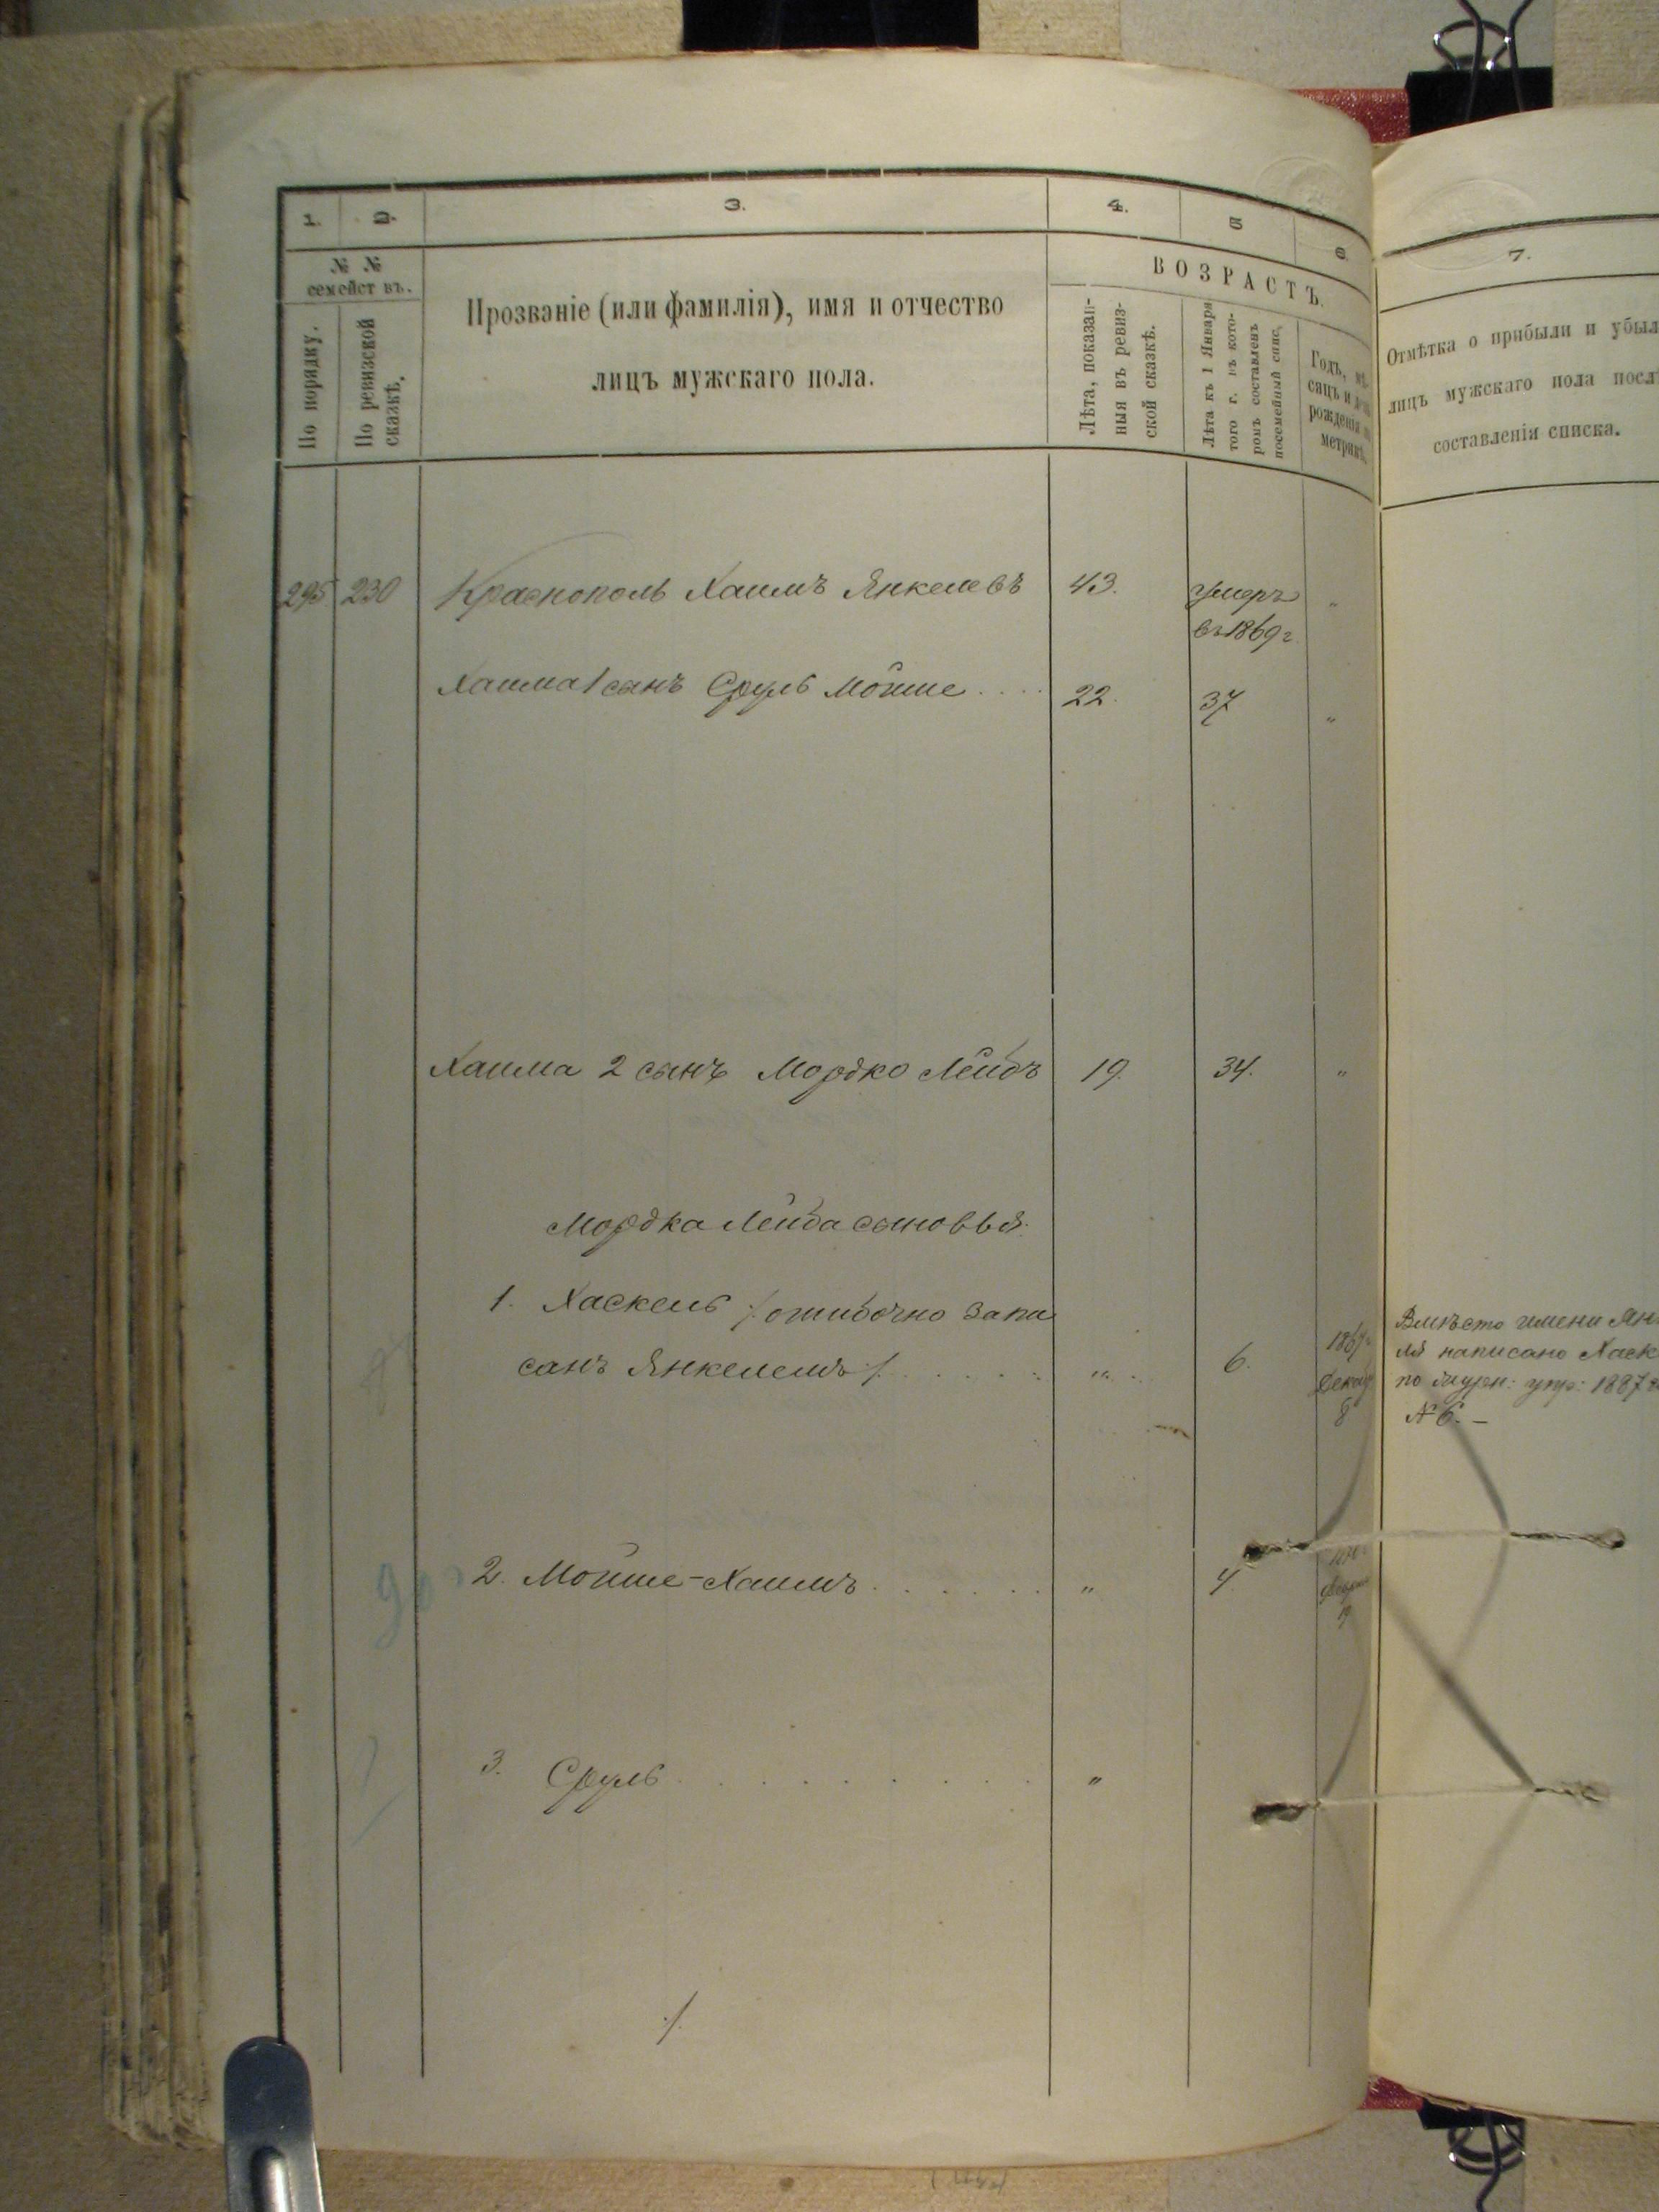 1.
2.
3.
4.
5
6.
7.
№ №
семейст въ.
По порядку.
По ревизской
сказкѣ.
Прозваніе (или фамилія), имя и отчество
лицъ мужскаго пола.
ВОЗРАСТЪ.
Лѣта, показан-
ныя въ ревиз-
ской сказкѣ.
Лѣта къ 1 Января
того г. въ кото-
ромъ составленъ
посемейный спис.
Годъ, мѣ-
сяцъ и день
рожденія по
метрикѣ.
Отмѣтка о прибыли и убыл
лицъ мужскаго пола посл
составленія списка.
295 230 Краснополь Хаимъ Янкелевъ 43. умеръ „
въ 1869 г.
Хаима 1 сынъ Сруль Мойше .... 22. 37 „
Хаима 2 сынъ Мордко Лейбъ 19. 34. „
Мордка Лейба сыновья:
1. Хаскель /: ошибочно запи
санъ Янкелемъ :/ ...... „ 6. 1867 Декаб 8
Вмѣсто имени Янк
ля написано Хаск
по журн: упр: 1887 г
№ 6. –
2. Мойше-Хаимъ ....... „ 4
19
3. Сруль ......... „
./.